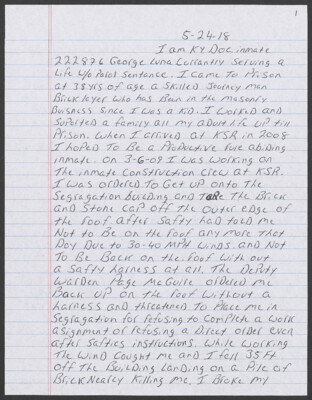 1
5-24-18
I am Ky Doc inmate
222876 George Luna Lurrantry Serving a
Life w/o Parol Sentance. I came To Prison
at 38 yrs of age a Skilled Journey man
Brick layer who has Been in the masonry
Buisness Since I was a KID. I worked and
Suported a family all my adult Life up Till
Prison. when I arrived at KSR in 2008
I hoped To Be a Productive rule abiding
inmate. on 3-6-09 I was working on
The inmate Construction Crew at KSR.
I was ordered To Get up onto The
Segragation building and Take The Brick
and Stone Cap off The outer edge of
the roof after Safty had Told me
Not to Be on the roof any more That
Day Due to 30-40 MPH winds. and Not
To Be Back on the roof with out
a Safty Harness at all. The Deputy
Warden Page McGuire ordered me
Back up on the roof without a
harness and threatened To Place me in
Segragation for refusing to Complete a work
asignment or refusing a Direct order even
after Safties instructions. while working
The wind Caught me and I fell 35 ft
off The Building Landing on a Pile of
Brick Nearly Killing me. I Broke my